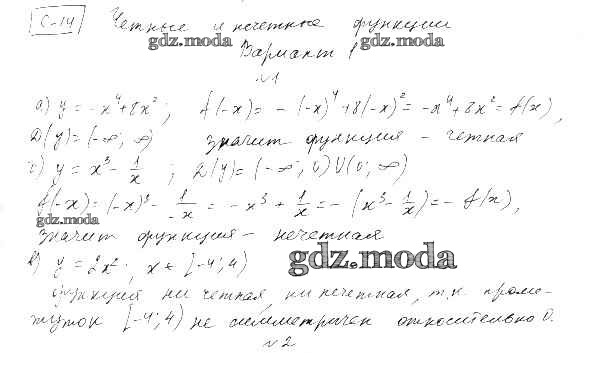 С-14 Четные и нечетные функции
gdz.moda gdz.moda
Вариант 1
№1
а) y = -x⁴+8x²; f(-x) = -(-x)⁴+8(-x)² = -x⁴+8x² = f(x),
D(y) = (-∞; ∞) значит функция - четная
б) y = x³ - 1/x ; D(y) = (-∞; 0)∪(0; ∞)
f(-x) = (-x)³ - 1/-x = -x³ + 1/x = -(x³ - 1/x) = -f(x),
gdz.moda
значит функция - нечетная
в) y = 2x²; x ∈ [-4; 4)
gdz.moda
Функция ни четная, ни нечетная, т.к проме-
жуток [-4; 4) не симметричен относительно 0.
№2